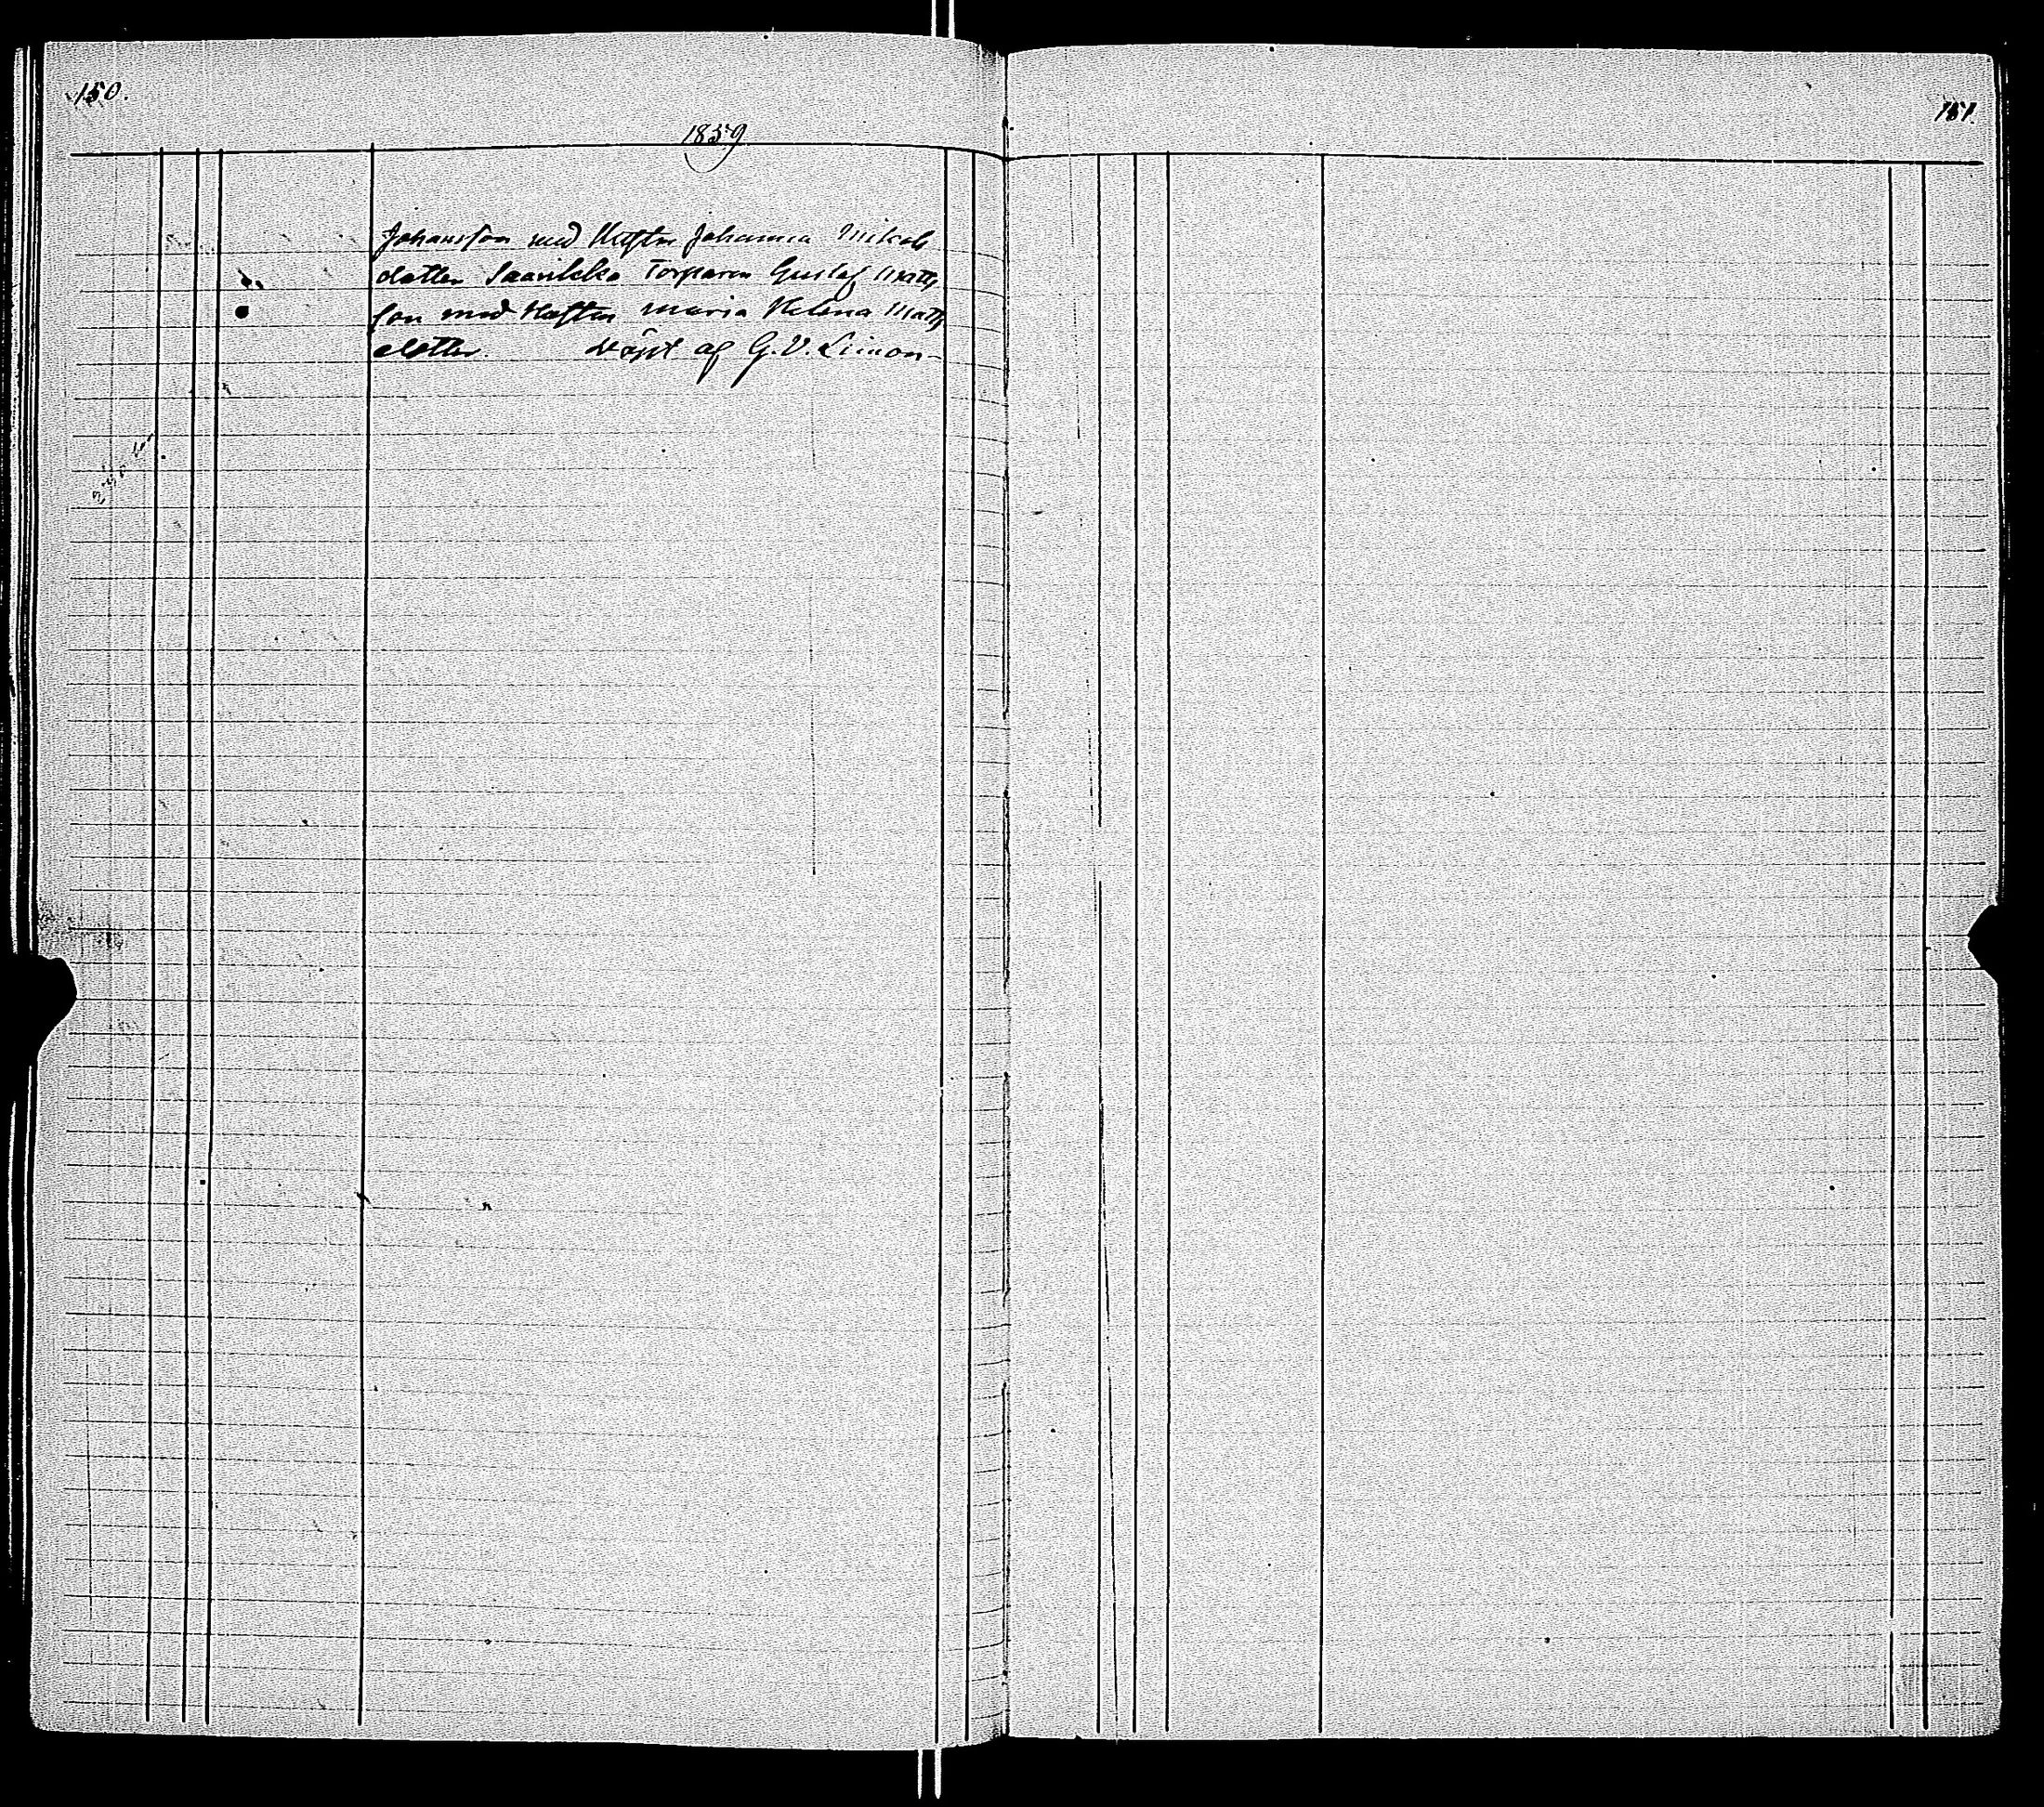 150.
151.
1859
Johansson med Hustru Johanna Mikels
dotter Saarikko Torparen Gustaf Matts
son med Hustru Maria Helena Matts
dotter. döpt af G. V. Limon-